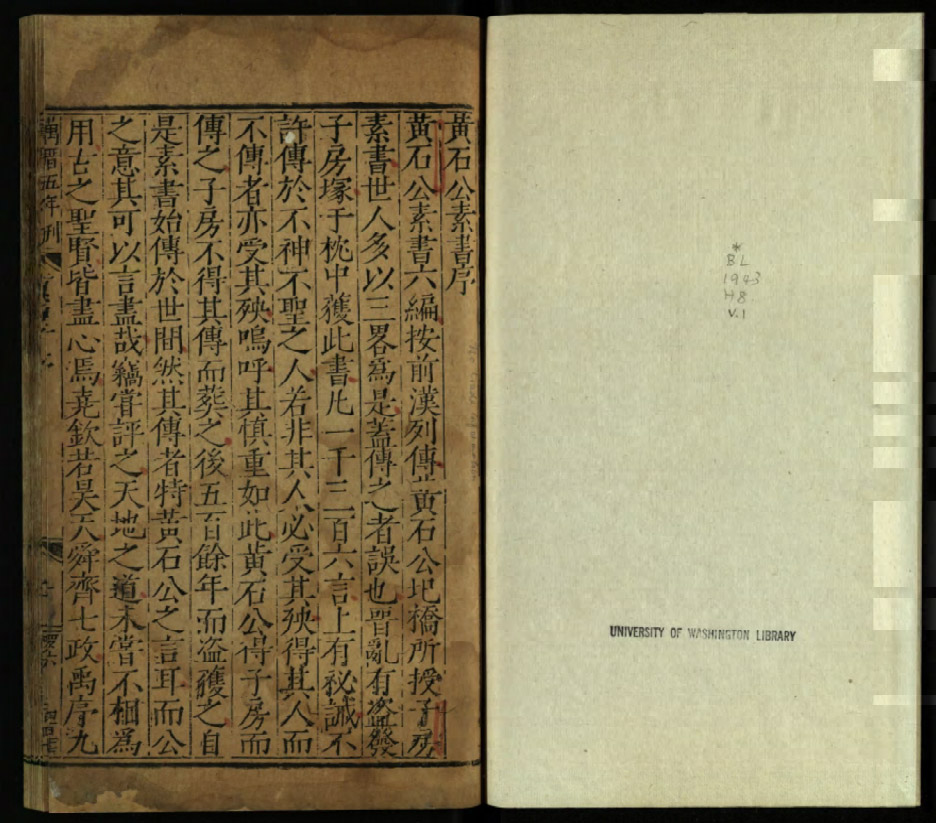 黃石公素書序
黃石公素書六編按前漢列傳黃石公圯橋所授子房
素書世人多以三畧爲是蓋傳之者誤也晋亂有盜發
子房塚于枕中獲此書凡一千三百六言上有秘誡不
許傳於不神不聖之人若非其人必受其殃得其人而
不傳者亦受其殃嗚呼其慎重如此黃石公得子房而
傳之子房不得其傳而葬之後五百餘年而盜獲之自
是素書始傳於世間然其傳者特黃石公之言耳而公
之意其可以言盡哉竊甞評之天地之道未嘗不相爲
用古之聖賢皆盡心焉堯欽若昊天舜齊七政禹序九
萬曆五年刊
*
BL
1943
H8
V.1
UNIVERSITY OF WASHINGTON LIBRARY